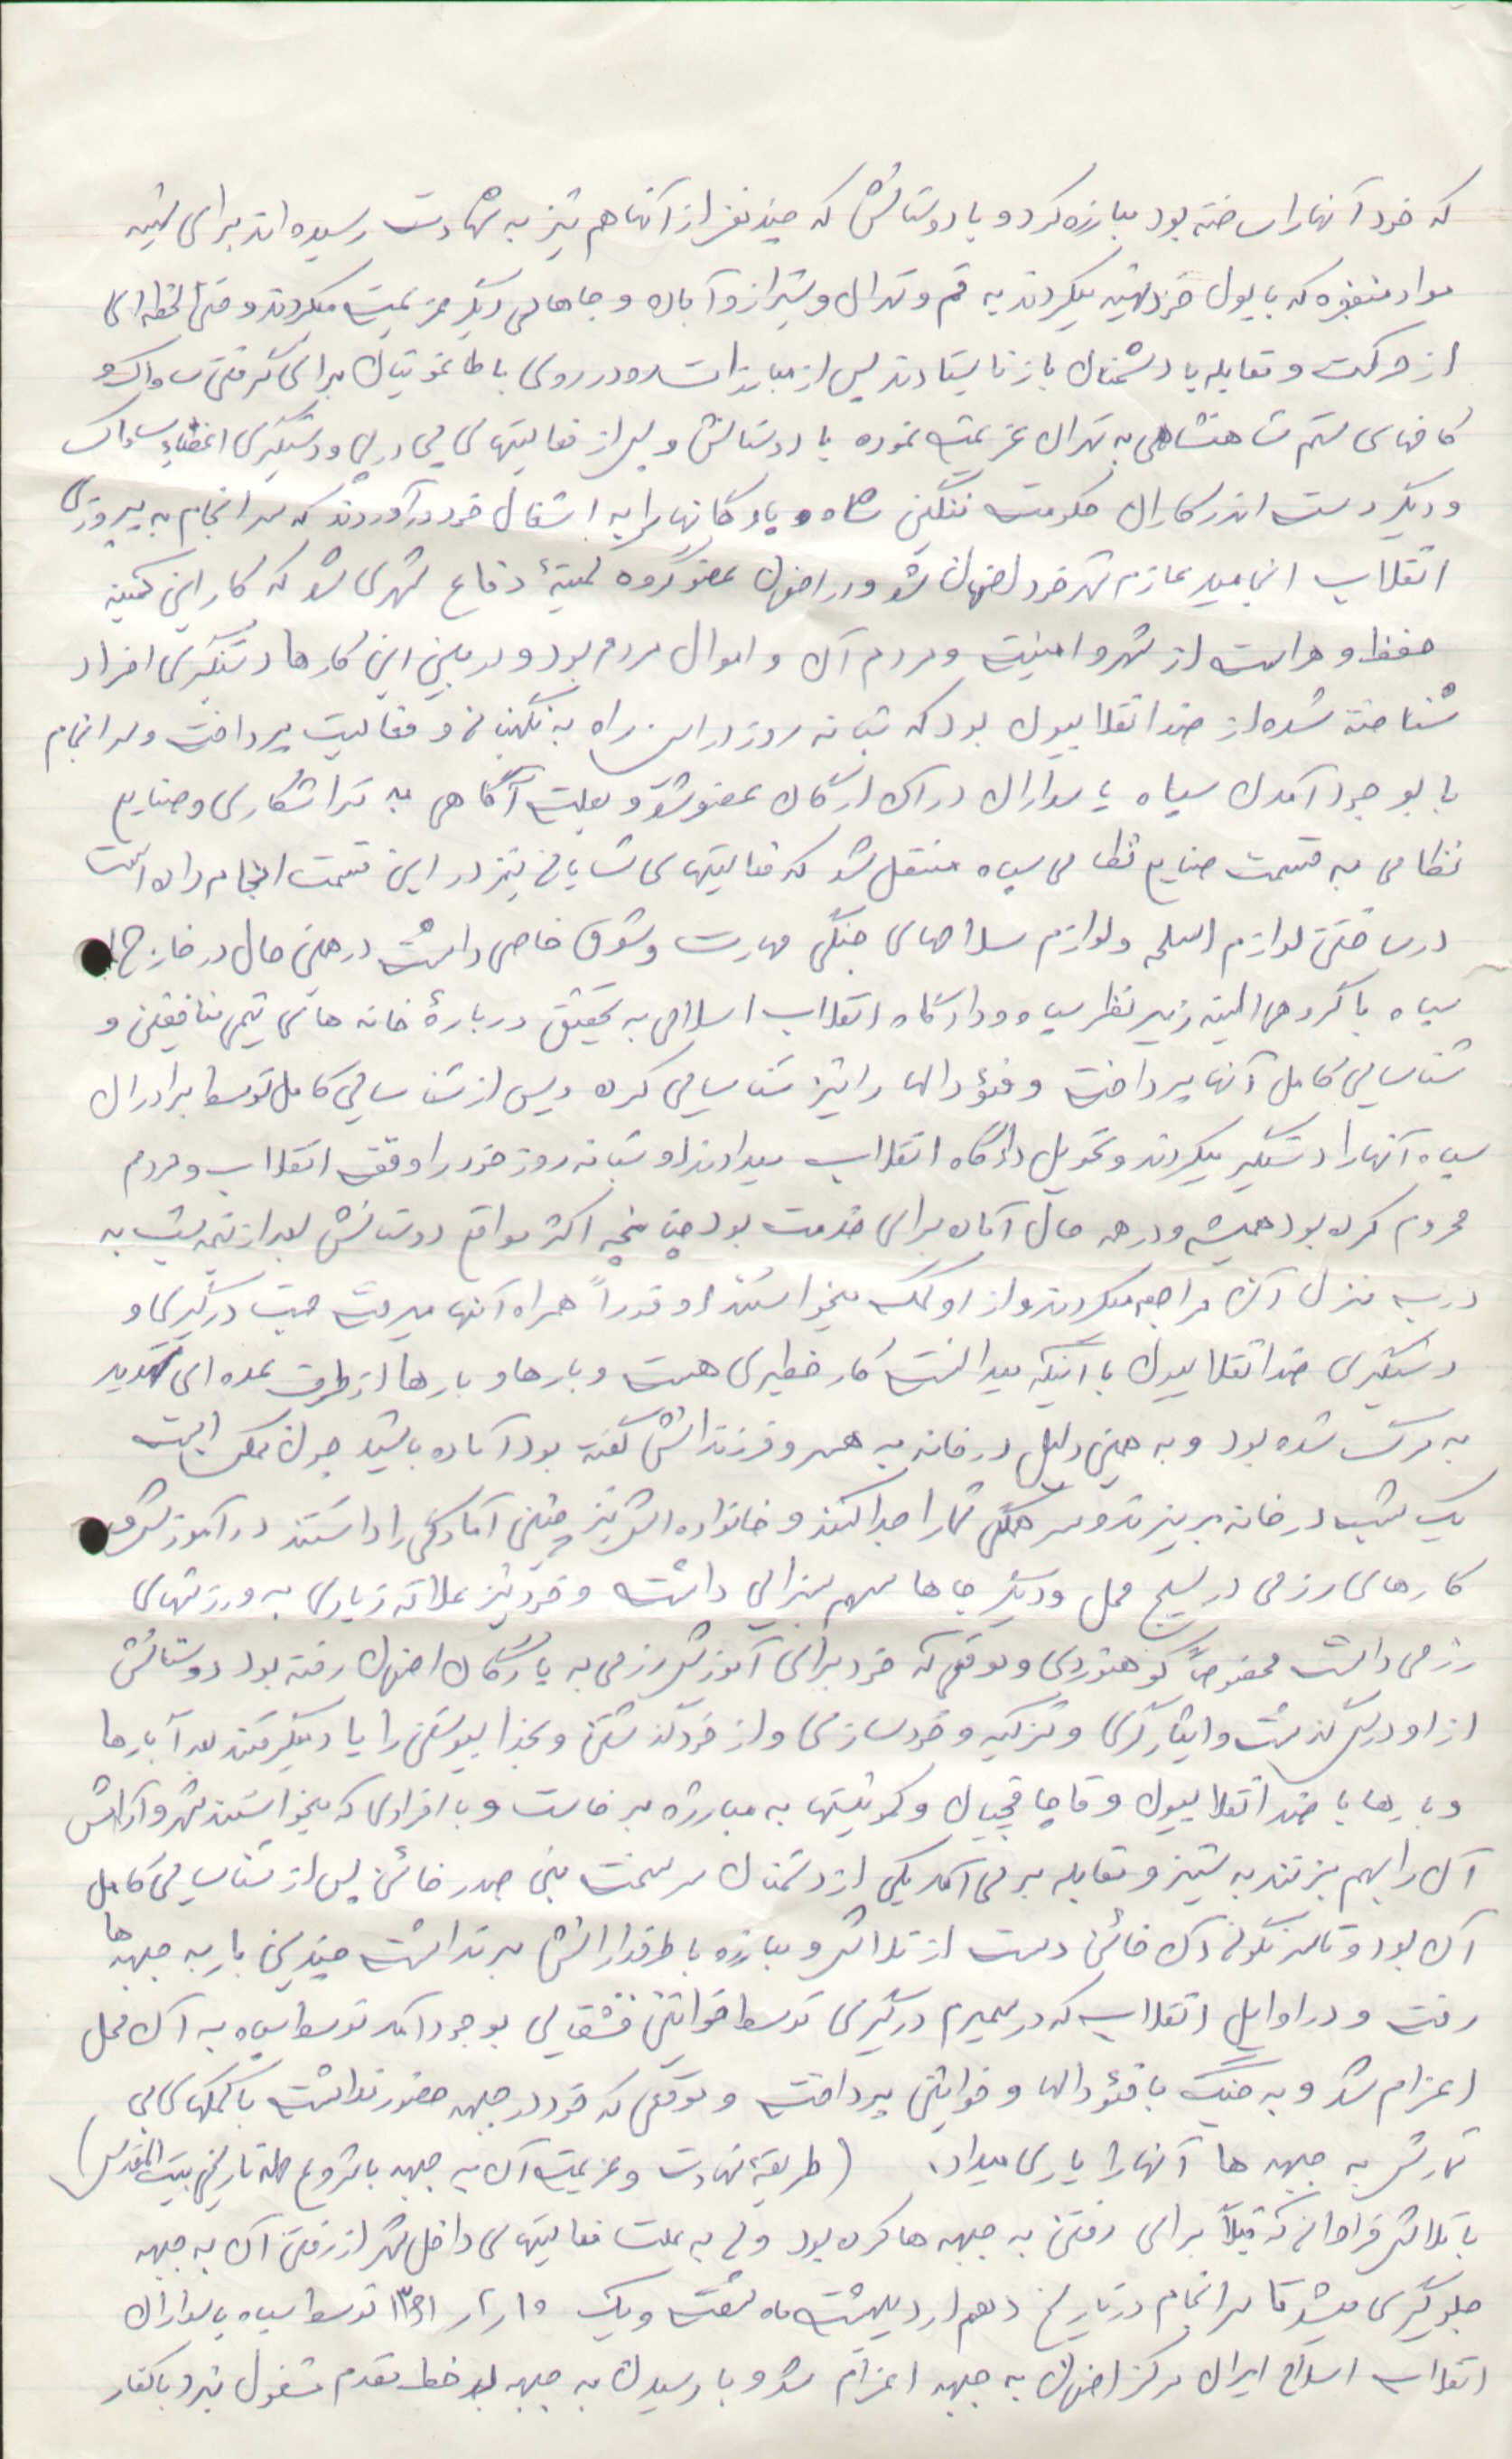 که خود آنها را ساخته بود مبارزه کرد و با دوستانش که چند نفر از آنها هم نیز به شهادت رسیده اند برای تهیه
مواد منفجره که با پول خود تهیه میکردند به قم و تهران و شیراز و آباده و جاهای دیگر عزیمت میکردند و حتی لحظه ای
از حرکت و مقابله با دشمنان باز نایستادند پس از مبارزات رو در روی با طاغوتیان برای گرفتن ساواک و
کاخهای ستم شاهنشاهی به تهران عزیمت نموده با دوستانش و پس از فعالیتهای پی در پی و دستگیری اعضاء ساواک
و دیگر دست اندر کاران حکومت ننگین شاه و پادگانها را به اشغال خود در آوردند که سرانجام به پیروزی
انقلاب انجامید عازم شهر خود اصفهان شد و در اصفهان عضو گروه کمیتهٔ دفاع شهری شد که کار این کمیته
حفظ و حراست از شهر و امنیت و مردم آن و اموال مردم بود و در بین این کارها دستگیری افراد
شناخته شده از ضد انقلابیون بود که شبانه روز در این راه به نگهبانی و فعالیت پرداخت و سرانجام
با بوجود آمدن سپاه پاسداران در آن ارگان عضو شد و بعلت آگاهی به تراشکاری و صنایع
نظامی به قسمت صنایع نظامی سپاه منتقل شد که فعالیتهای شایانی نیز در این قسمت انجام داده است
در ساختن لوازم اسلحه و لوازم سلاحهای جنگی مهارت و شوق خاصی داشت در همین حال در خارج از
سپاه با گروهی البته زیر نظر سپاه و دادگاه انقلاب اسلامی به تحقیق دربارهٔ خانه های تیمی منافقین و
شناسایی کامل آنها پرداخت و فئودالها را نیز شناسایی کرده و پس از شناسایی کامل توسط برادران
سپاه آنها را دستگیر میکردند و تحویل دادگاه انقلاب میدادند او شبانه روز خود را وقف انقلاب و مردم
محروم کرده بود همیشه و در همه حال آماده برای خدمت بود چنانچه اکثر مواقع دوستانش بعد از نیمه شب به
درب منزل آن مراجعه میکردند و از او کمک میخواستند او فوراً همراه آنها میرفت جهت درگیری و
دستگیری ضد انقلابیون با اینکه میدانست کار خطیری هست و بارها و بارها از طرف عده ای تهدید
به مرگ شده بود و به همین دلیل در خانه به همسر و فرزندانش گفته بود آماده باشید چون ممکن است
یک شب در خانه بریزند و سر همگی شما را جدا کنند و خانواده اش نیز چنین آمادگی را داشتند در آموزش
کارهای رزمی در بسیج محل و دیگر جاها سهم بسزایی داشت و خود نیز علاقه زیادی به ورزشهای
رزمی داشت مخصوصاً کوهنوردی و موقعی که خود برای آموزش رزمی به پادگان اصفهان رفته بود دوستانش
از او درس گذشت و ایثارگری و تزکیه و خودسازی و از خود گذشتن و بخدا پیوستن را یاد میگرفتند بعد آ بارها
و بارها با ضد انقلابیون و قاچاقچیان و کمونیستها به مبارزه برخاست و با افرادی که میخواستند شهر و آرامش
آن را بهم بزنند به ستیز و مقابله بر می آمد یکی از دشمنان سرسخت بنی صدر خائن پس از شناسایی کامل
آن بود و تا سرنگونی آن خائن دست از تلاش و مبارزه با طرفدارانش برنداشت چندین بار به جبهه ها
رفت و در اوایل انقلاب که در سمیرم درگیری توسط خوانین قشقایی بوجود آمد توسط سپاه به آن محل
اعزام شد و به جنگ با فئودالها و خوانین پرداخت و موقعی که خود در جبهه حضور نداشت با کمکهای بی
شمارش به جبهه ها آنها را یاری میداد. (طریقهٔ شهادت و عزیمت آن به جبهه با شروع حمله تاریخی بیت المقدس)
با تلاش فراوانی که قبلاً برای رفتن به جبهه ها کرده بود ولی به علت فعالیتهای داخل شهر از رفتن آن به جبهه
جلوگیری میشد تا سرانجام در تاریخ دهم اردیبهشت ماه شصت و یک ۱۰/۲/۱۳۶۱ توسط سپاه پاسداران
انقلاب اسلامی ایران مرکز اصفهان به جبهه اعزام شد و با رسیدن به جبهه در خط مقدم مشغول نبرد با کفار